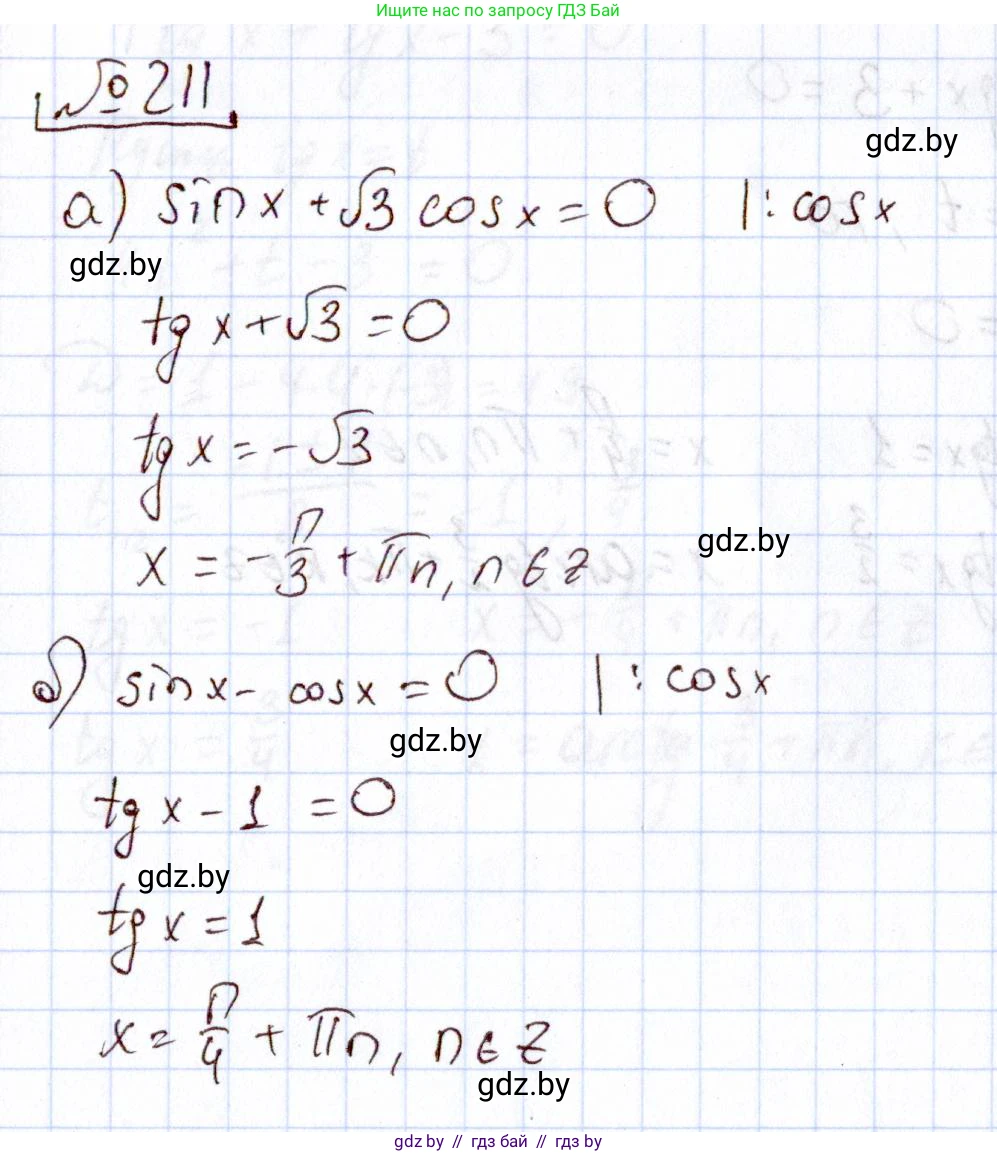 Ищите нас по запросу ГДЗ Бай
№ 211
gdz.by
а) sin x + √3 cos x = 0 | : cos x
gdz.by
tg x + √3 = 0
tg x = -√3
gdz.by
x = -π/3 + πn, n ∈ Z
б) sin x - cos x = 0 | : cos x
gdz.by
tg x - 1 = 0
gdz.by
tg x = 1
x = π/4 + πn, n ∈ Z
gdz.by
gdz.by // гдз бай // гдз by